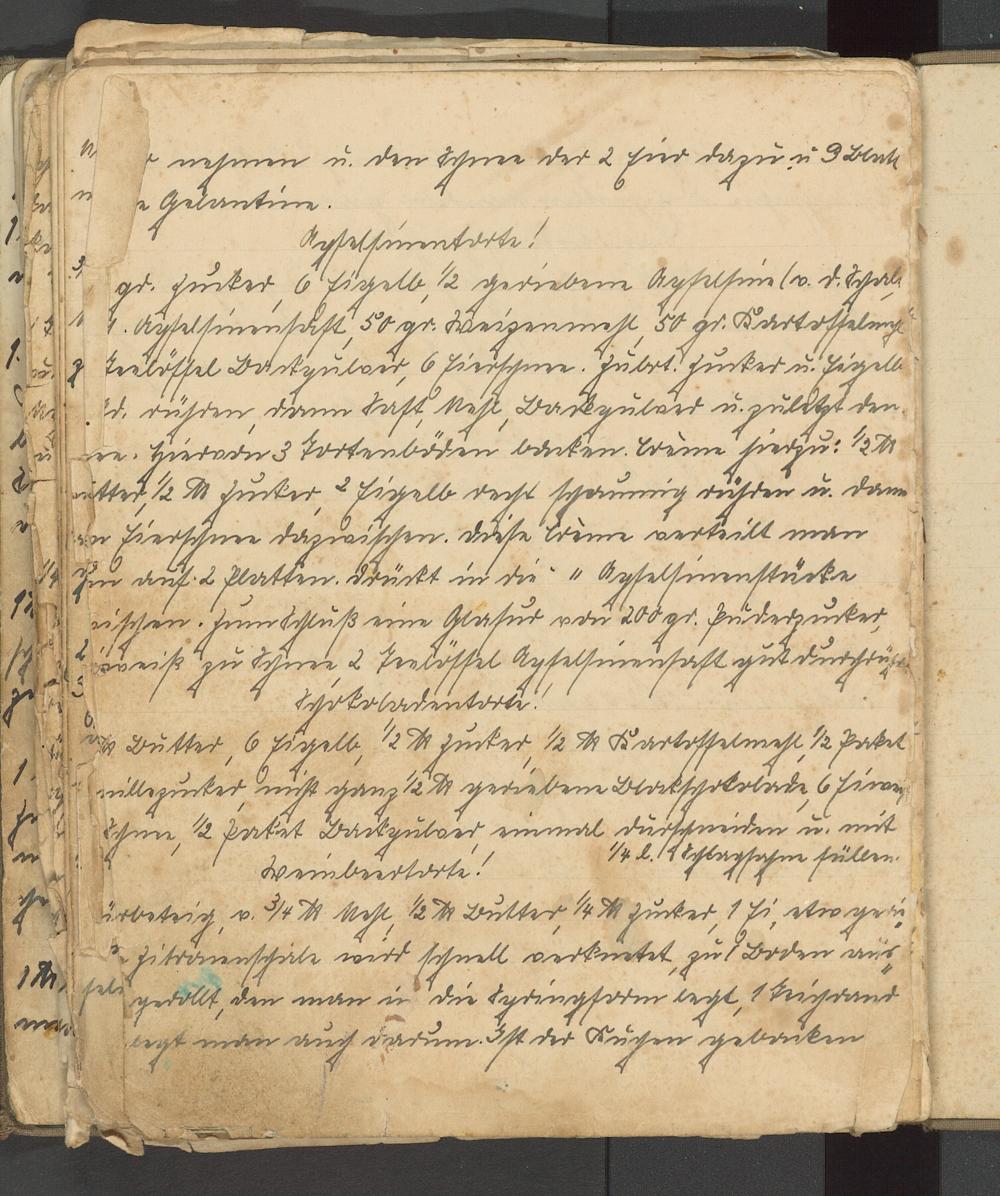 nehmen u. den Schnee der 2 Eier dazu u 9 Blatt
e Gelantine.
Apfelsinentorte!
gr. Zucker, 6 Eigelb, 1/2 geriebene Apfelsine (v. d. Schale
Apfelsinensaft, 50 gr. Weizenmehl, 50 gr. Kartoffelmehl
Teelöffel Backpulver, 6 Eierschnee. Zubrt. Zucker u. Eigelb
rühren, dann Saft, Mehl, Backpulver u. zuletzt den
ee. Hiervon 3 Tortenböden backen. Crème hierzu: 1/2 ℔
utter, 1/2 ℔ Zucker, 2 Eigelb recht schaumig rühren u. dann
Eierschnee dazwischen. Diese Crème verteilt man
auf 2 Platten. Drückt in die " Apfelsinenstücke
ischen. Zum Schluß eine Glasur von 200 gr. Puderzucker,
weiß zu Schnee, 2 Teelöffel Apfelsinensaft gut durchrühr
Schokoladentorte!
℔ Butter, 6 Eigelb, 1/2 ℔ Zucker, 1/2 ℔ Kartoffelmehl, 1/2 Paket
nillezucker, nicht ganz 1/2 ℔ geriebene Blockschokolade, 6 Eiweiß
Schnee, 1/2 Paket Backpulver, einmal durchneiden u. mit
1/4 l. Schlagsahne füllen.
Weinbeertorte!
ürbeteig, v. 3/4 ℔ Mehl, 1/2 ℔ Butter, 1/4 ℔ Zucker, 1 Ei, etw geri
Zitronenschale wird schnell verknetet, zu 1 Boden aus
gerollt, den man in die Springform legt, 1 Teigrand
legt man auch darum. Ist der Kuchen gebacken